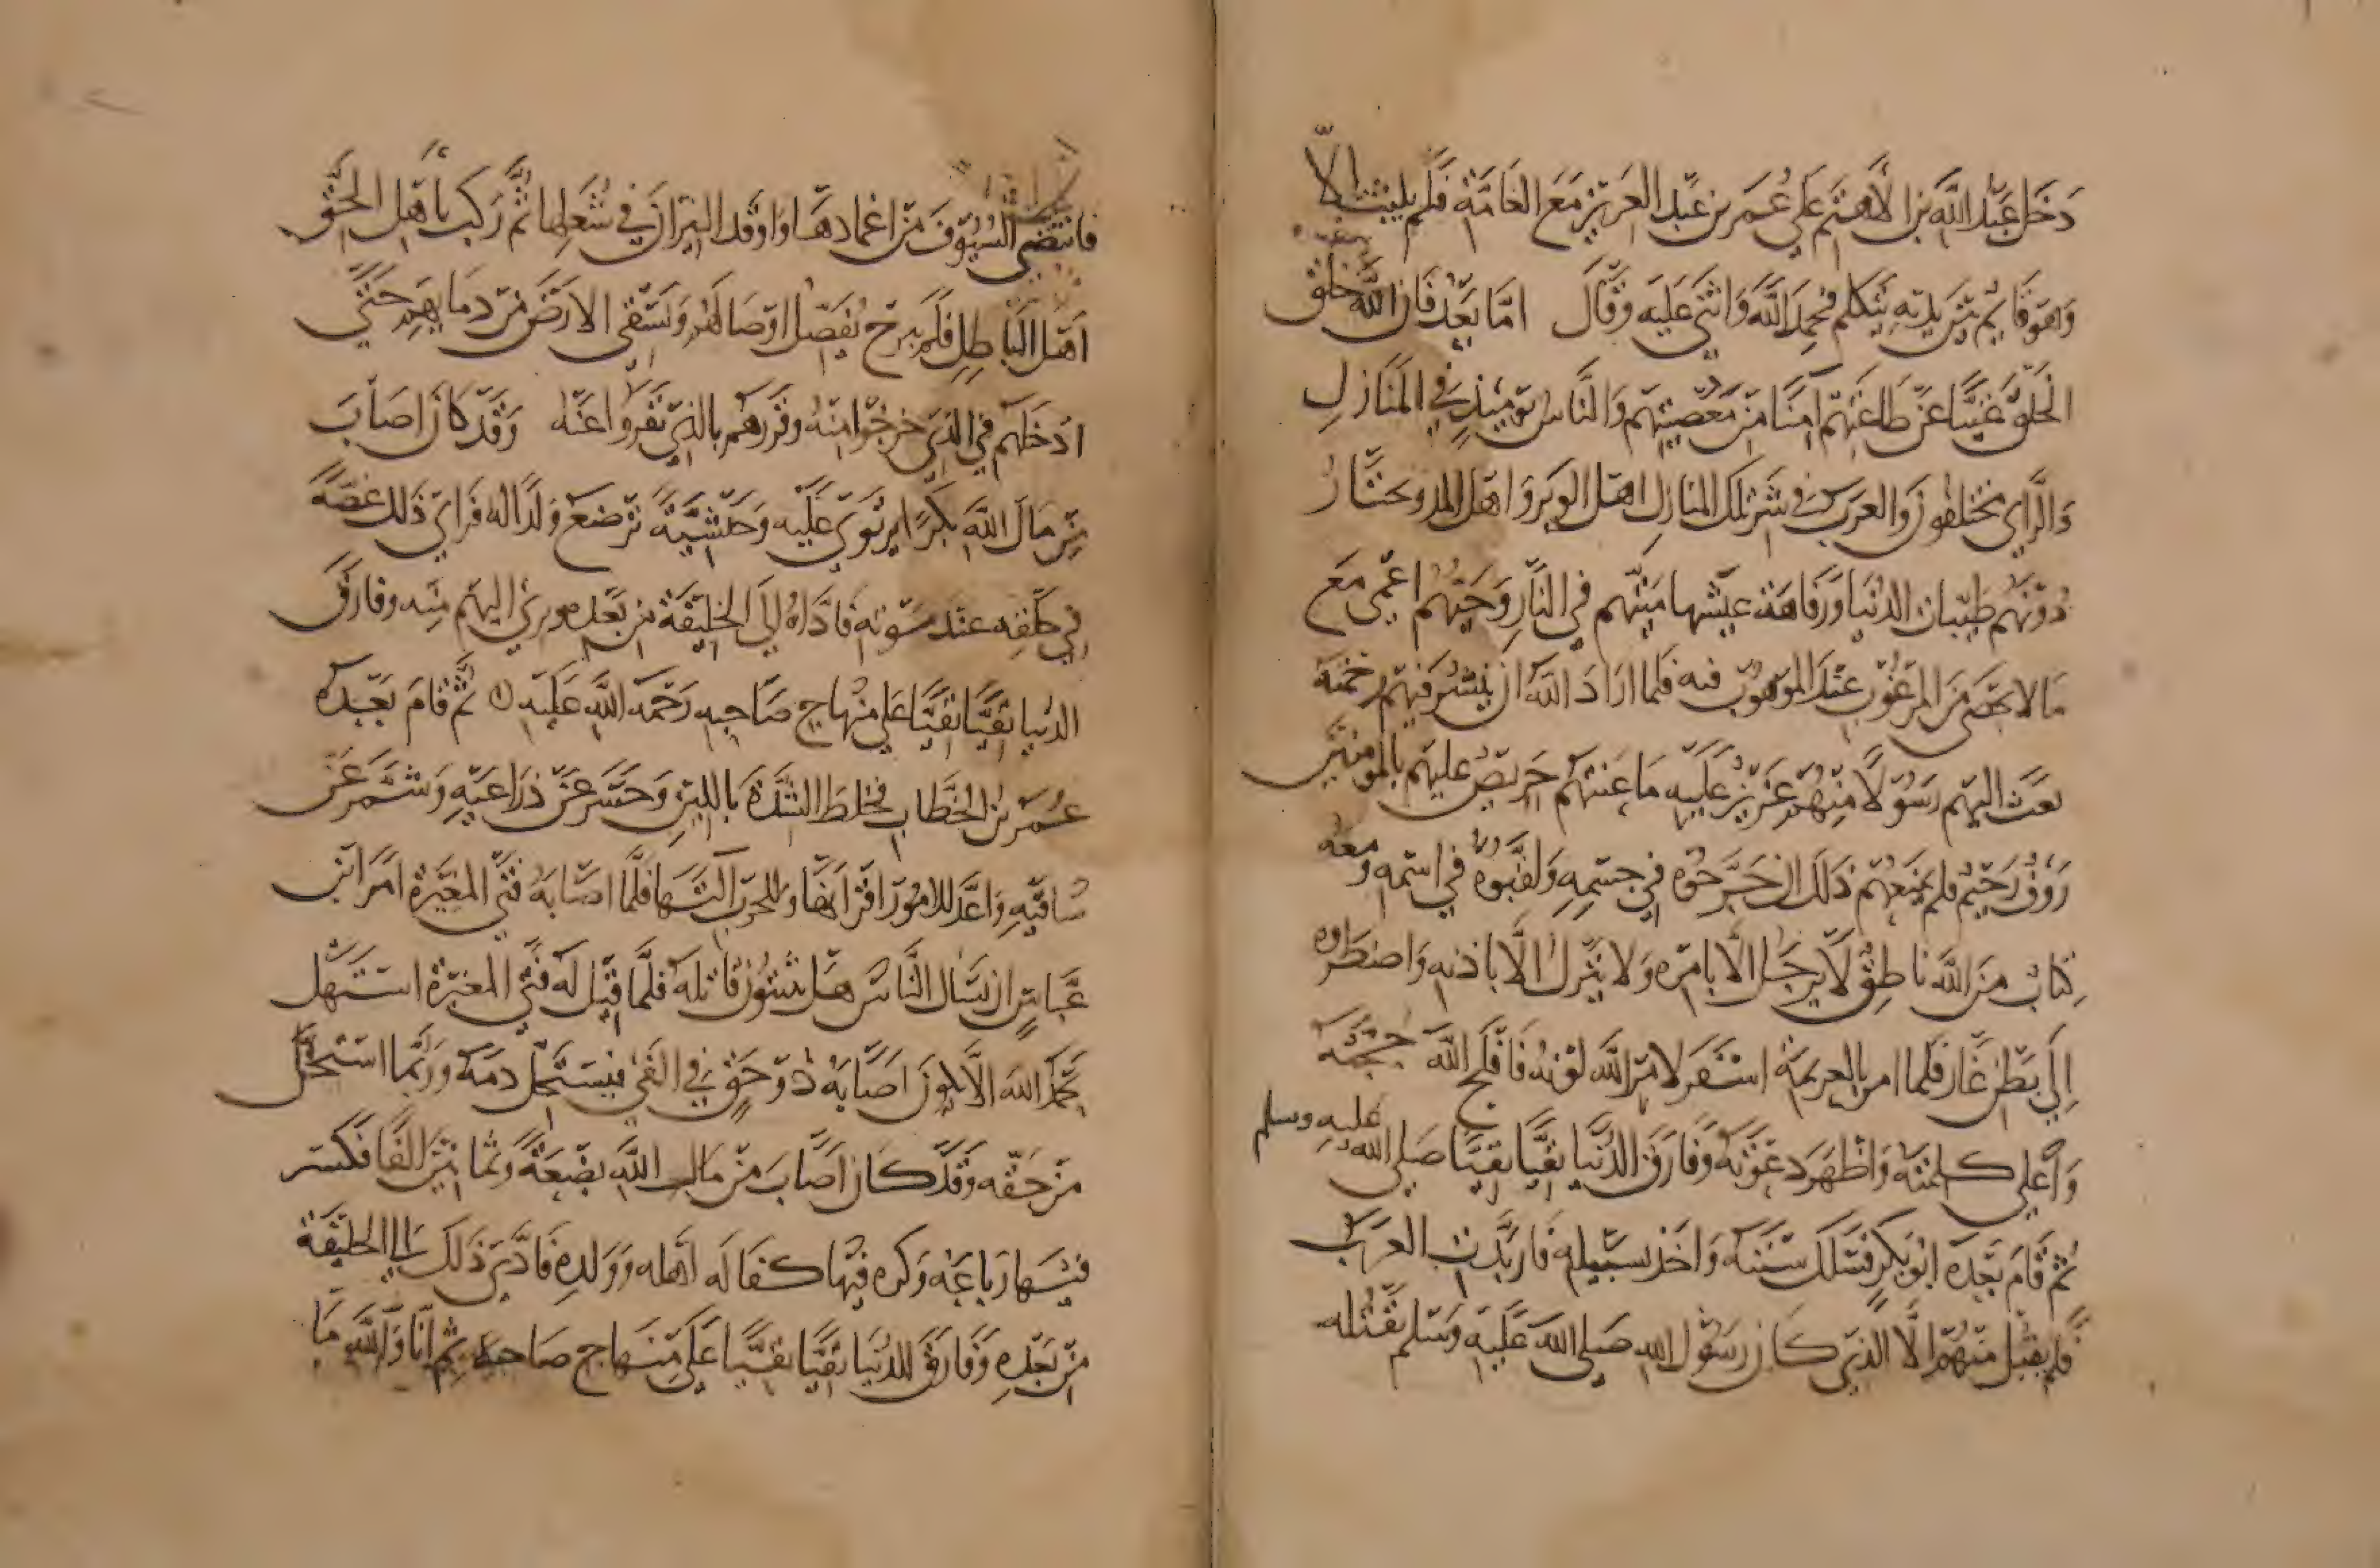 دَخَل عَبْد اللَّه بن الأَهْتَم عَلى عُمَر بن عَبْد العَزيز مَعَ العَامَّة فَلَم يلبث الّا
وَهوَ قَايِم بَيْن يديه يَتكلم فحمِدَ اللَّهَ وَاثْنى عَلَيه وَقَال امّا بَعْد فَان اللَّه خلق
الخَلْق غَنِيًّا عَن طَاعَتهم آمِنًا مِن مَعْصِيَتهم وَالنَّاس يَومَئذٍ فى المَنَازِل
وَالرَّاى مختلفون وَالعرب فى شَرّ تلك المنازل اهل الوبَر وَاهل المدر وتحتَازُ
دُوْنَهُم طَيّبات الدنْيَا وَرَفَاهَة عيْشها مَيّتهم في النّارِ وَحَيّهُم اعْمى مَع
مَا لا يحْصَى مِنَ المرْغُوب عَنْه المزْهُوْب فيه فلما ارَادَ اللَّه ان يَنْشُر فيهم رحْمته
بَعَث اليْهم رَسُوْلًا مِنْهُم عَزِيْز عَلَيه مَا عَنِتُّم حَرِيْص عليهم بالمؤمنين
رَؤُف رَحِيْم فلم يمْنعْهم ذَلك ان جَرَّحوْه في جسْمِهِ وَلقَّبُوه في اسْمِه وَمعَه
كِتابٌ مِنَ اللَّه نَاطِقٌ لَا يَرحَل الّا بامْره وَلا يَنْزِل الّا باذنه وَاضْطَرُّوه
اِلَى بَطْن غَارٍ فَلما امر بالعزيمَة اسْفَر لامْرِ اللَّه لوْنهُ فَافْلَج اللَّهُ حُجّته
وَأعْلى كلِمَتَه وَاظْهَر دعْوَتَهُ وَفَارَق الدُّنْيَا تَقيًّا نَقيًّا صَلى اللَّه عليه وسلم
ثُم قَامَ بَعْدَه ابُو بَكر فَسَلك سُنَّتَه وَاَخَذ سَبِيله فَارتَدَّت العَرَب
فلم يقْبَل مِنْهُم الّا الَّذى كَان رَسُوْل الله صَلى اللَّه عَلَيْه وَسَلم يَقْبَله
فانتضى السُّيُوفَ مِن اغمادهَا وَاوقَد النيرَان فى شُعَلِها ثُمَّ رَكبَ بأهْل الحَقّ
اهْلَ البَاطِلِ فلَم يبرَح يُفَصّل اوْصَالَهُم وَيَسْقى الارْضَ مِن دمَايهم حَتّى
ادْخَلهم في الذي خرجُوا مِنْهُ وقرَّرهُم بالذي نَفَرُوا عَنْه وَقَدْ كَان اصَابَ
مِنْ مَال اللَّه بَكرًا يرتَوى عَلَيْه وَحَبَشِيَّةً تُرْضِع وَلدًا له فَرَاى ذَلك غصَّةً
في حَلْقِه عندَ مَوْته فَادَّاهُ الى الخليْفَة مِن بَعْده وبرئ اليهم مِنْه وفارَق
الدُّنيا تقيًّا نقيًّا عَلى مِنْهاج صَاحِبه رَحْمَة اللَّه عَلَيه ثم قَامَ بَعْدَهُ
عُمَر بن الخَطَّاب فخلطَ الشّدّةَ باللينِ وَحَسَر عَن ذِراعَيْهِ وَشمَّر عَن
سَاقَيْهِ وَاعَدَّ للامُور اقْرَانهَا وَللحَرْب آلتَهَا فلمَّا اصَابَهُ فتَى المغِيْرة امَر ابْن
عَبَّاسٍ ان يَسْال النَّاس هَل يثبتُون قَاتلهُ فَلَمَّا قيْلَ لَهُ فتَى المغيرَة اسْتَهَل
يَحْمَدُ اللَّه الّا يكون اصَابَهُ ذُو حَقٍّ في الفَيْ فيَسْتَحِلّ دَمَهُ وَرُبّمَا اسْتحَلّ
مِنْ حَقّه وَقَدْ كَان اصَابَ مِنْ مَالِ اللَّه بِضْعَةً وثمانيْنَ الفًا فكَسَر
فيْها رباعَهُ وَكَرِه فيْها كفَالَه اهْله وَوَلدِه فَادّى ذَلك الى الخليْفَة
مِن بَعْدِه وَفَارَق الدنيَا تقيًّا نقيًّا عَلى مِنهَاج صَاحبهِ ثُمّ انَّا وَاللَّه مَا